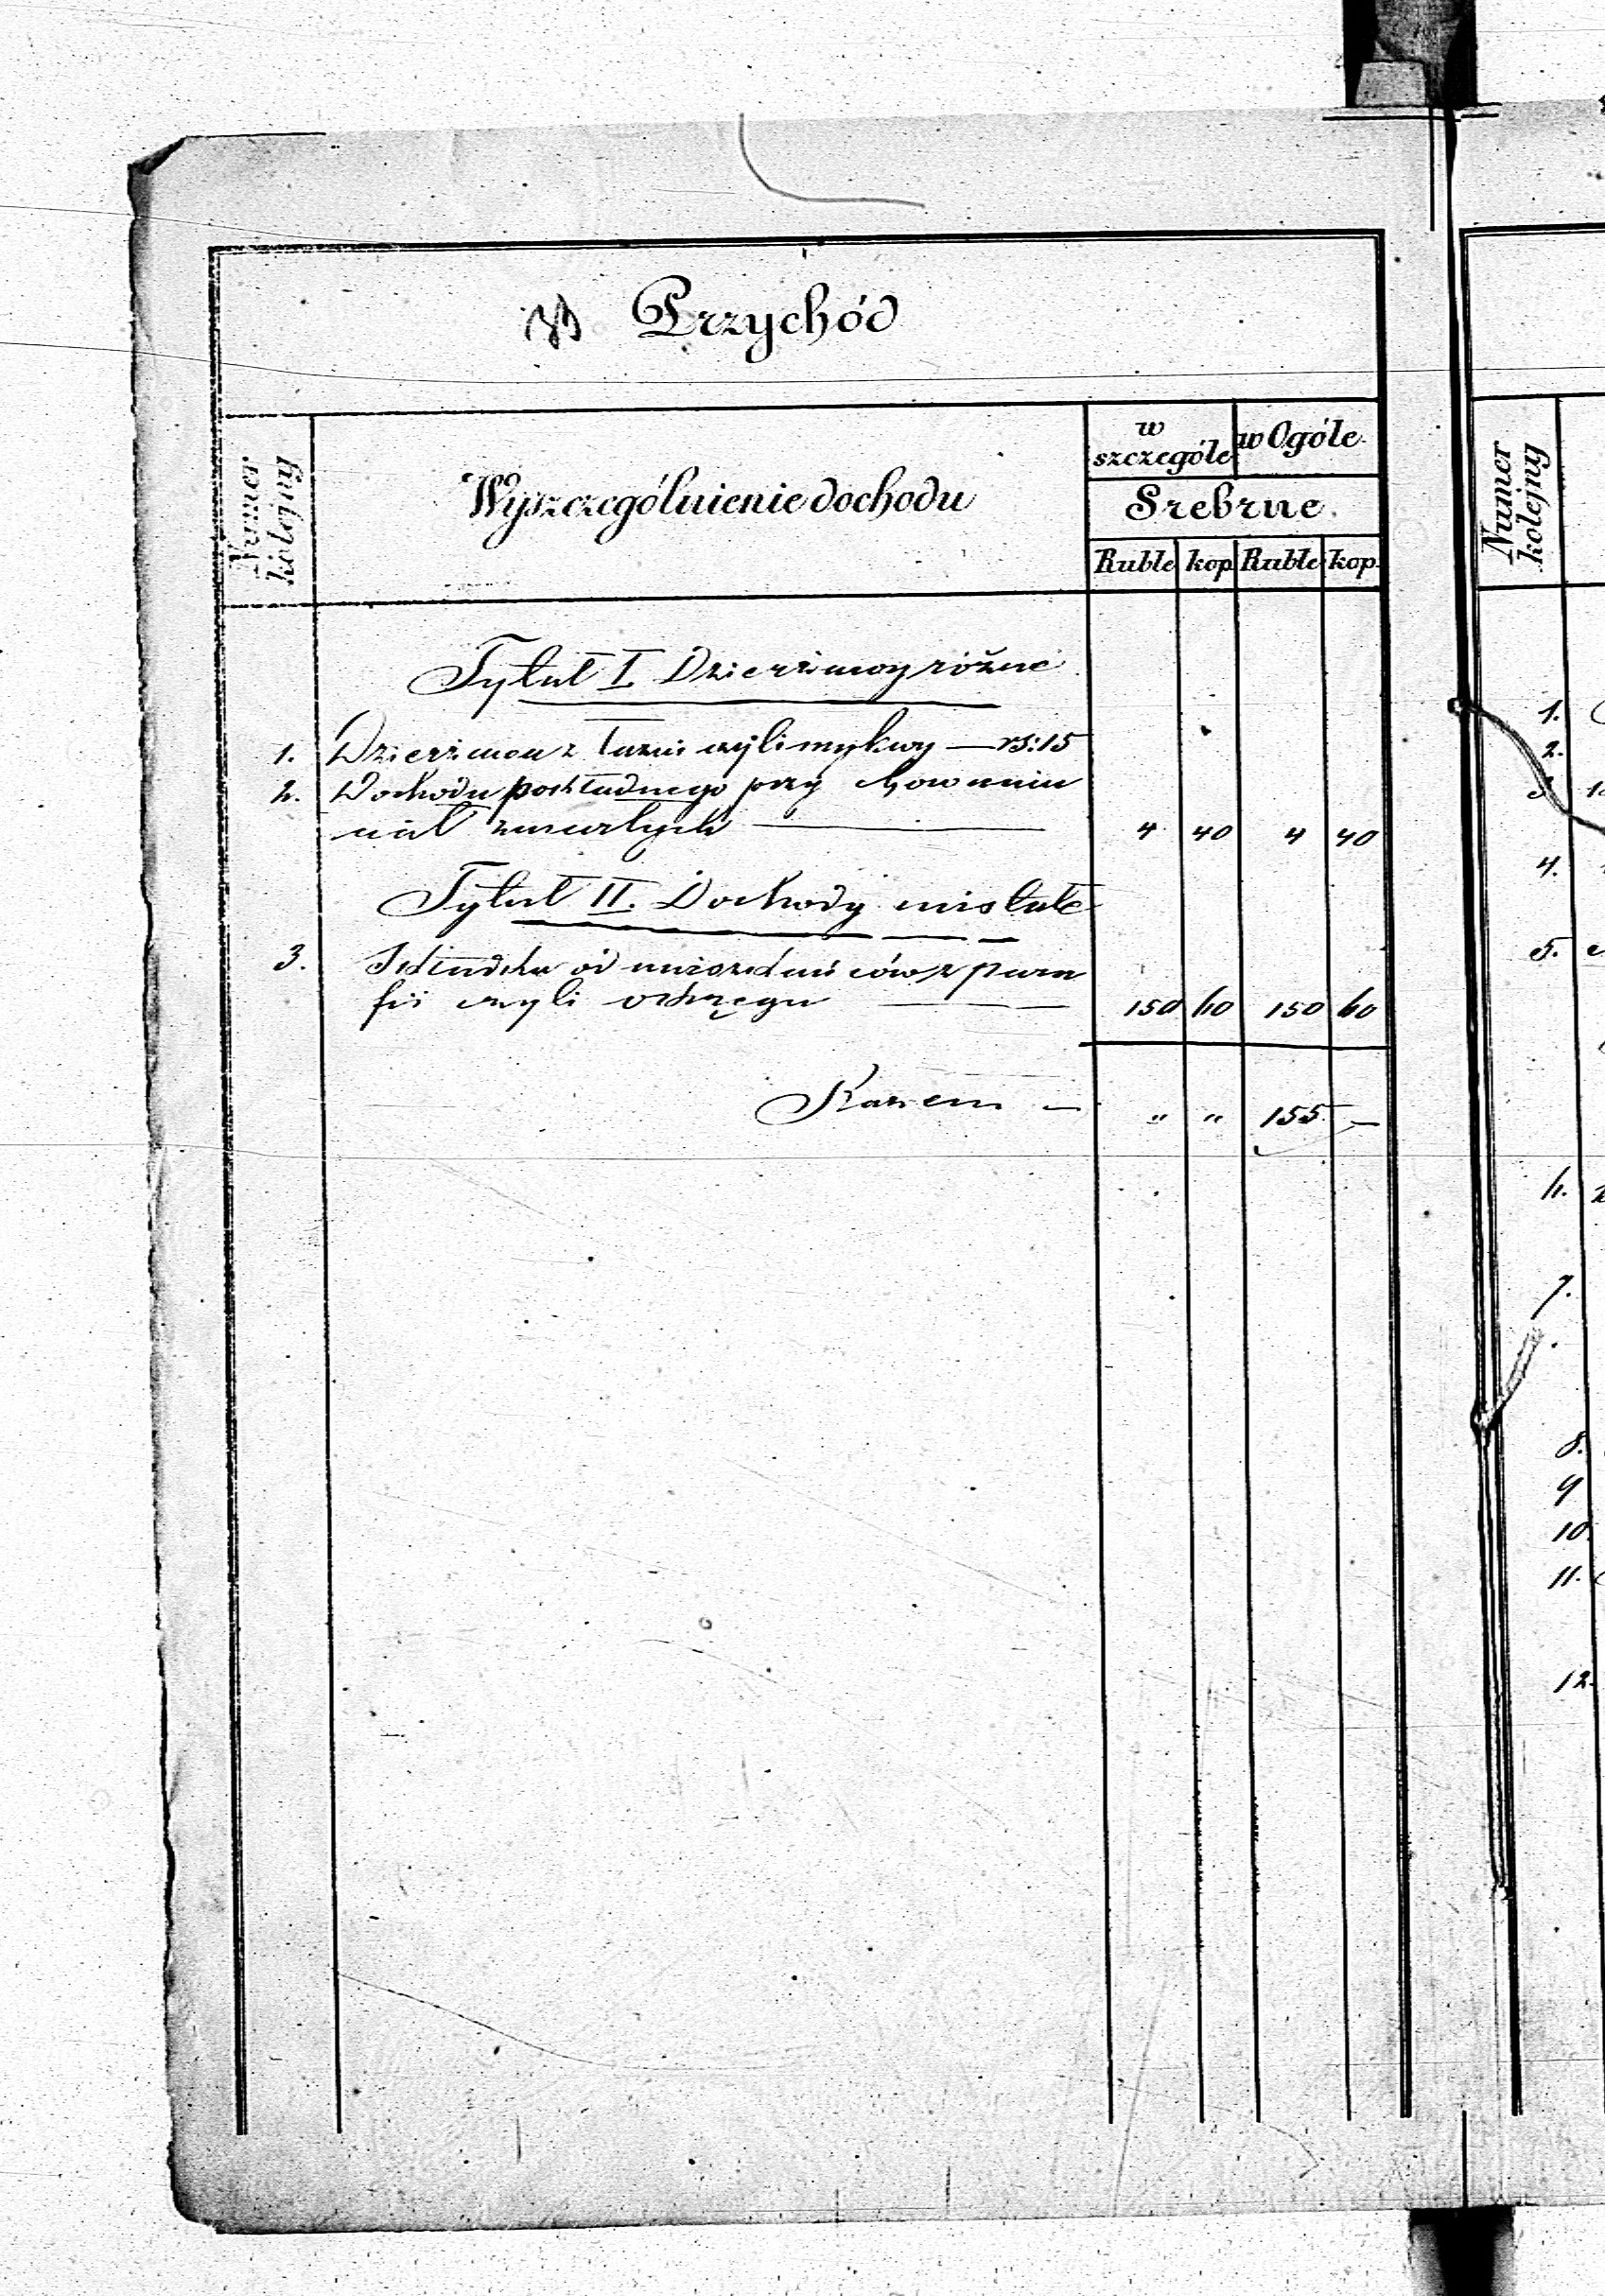 Przychód
Numer kolejny
Wyszczególnienie dochodu
w szczególe
w Ogóle
Srebrne
Ruble kop Ruble kop
Tytuł I Dzierżawy różne
1. Dzierżawa z łaźni czyli mykwy — rs: 15
2. Dochodu pokładnego przy chowaniu
ciał zmarłych — 4 40 4 40
Tytuł II. Dochody niestałe
3. Składka od mieszkańców z para
fii czyli okręgu — 150 60 150 60
Razem — " " 155 —
Numer kolejny
1.
2.
3.
4.
5.
6.
7.
8.
9
10.
11.
12.